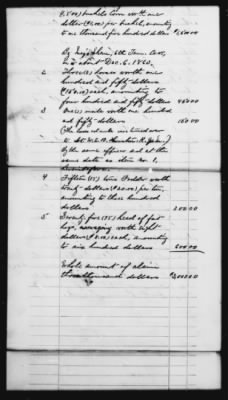 (1,500) bushels Corn worth one
dollar ($1.00) per bushel, amounting
to one thousand five hundred dollars $1,500.00
By Maj. 6th Tenn. Cav.,
in & about Dec. 6, 1863.
2 Three (3) horses worth one
hundred and fifty dollars
($150.00) each, amounting to
four hundred and fifty dollars 450.00
3 One (1) mule worth one hundred
and fifty dollars 150.00
by the same officer and at the
same date as item no. 1.
4 Fifteen (15) tons Fodder worth
twenty dollars ($20.00) per ton,
amounting to three hundred
dollars 300.00
5 Twenty five (25) head of fat
hogs, averaging worth eight
dollars each, amounting
to six hundred dollars 600.00
Whole amount of claim
three thousand dollars $3,000.00